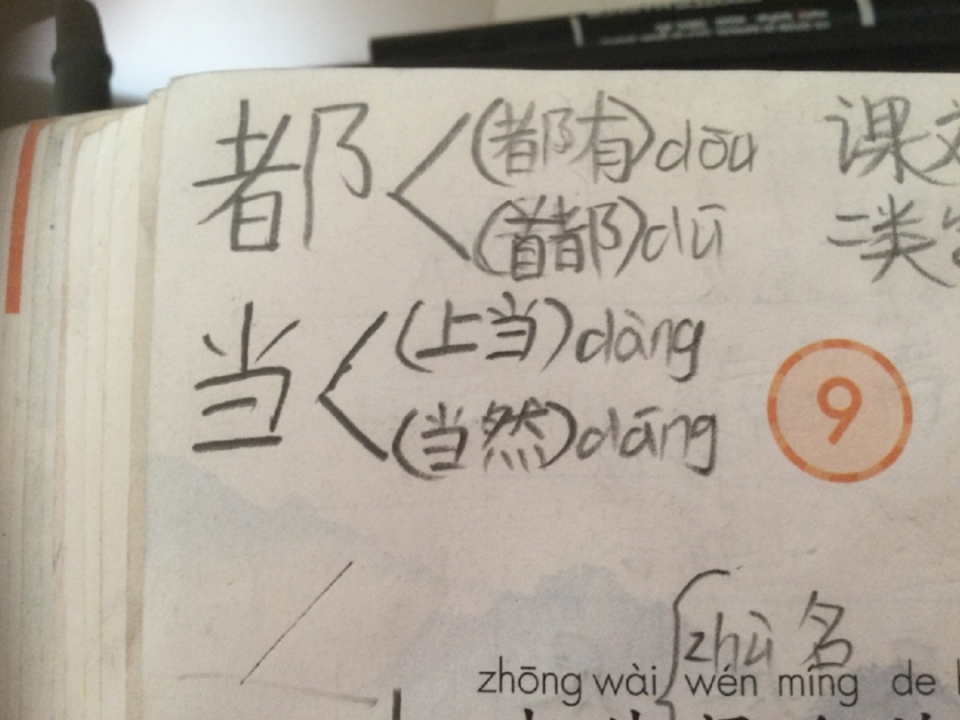 都
(都有)dōu 课文
(首都)dū 二类
当
(上当)dàng
(当然)dāng
9
zhù 名
zhōng wài wén míng de